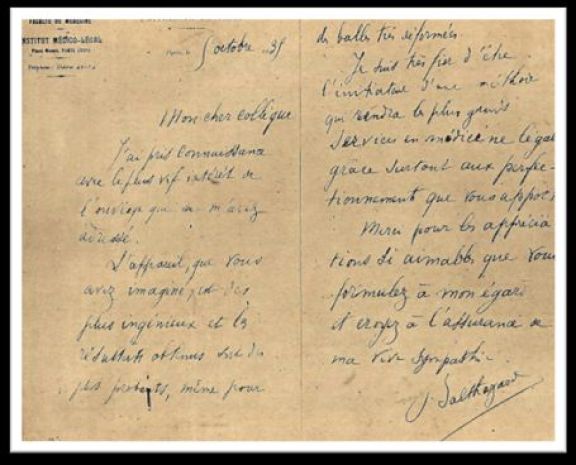 FACULTÉ DE MÉDECINE
INSTITUT MÉDICO-LÉGAL
Place Mazas, PARIS (XIIe)
5 octobre 35
Mon cher collègue
J'ai pris connaissance
avec le plus vif intérêt de
l'ouvrage que m'avez
adressé.
L'appareil, que vous
avez imaginé, est des
plus ingénieux et les
résultats obtenus sont des
plus probants, même pour
des balles très déformées.
Je suis très fier d'être
l'initiateur d'une méthode
qui rendra les plus grands
services en médecine légale
grâce surtout aux perfec-
tionnements que vous apportez
Merci pour les apprécia
tions si aimables que vous
formulez à mon égard
et croyez à l'assurance de
ma vive sympathie.
J. Balthazard